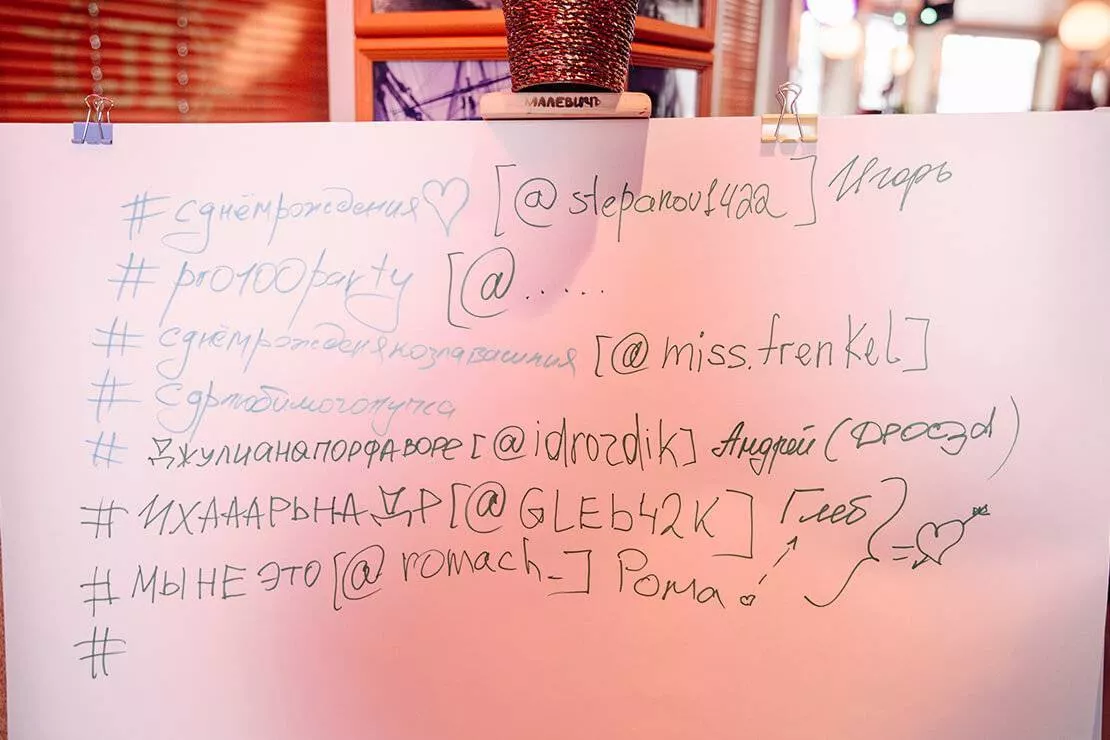 МАЛЕВИЧЪ
# сднёмрождения♡ [@stepanov1422] Игорь
# pro100party [@.....
# сднёмрожденякозлавашния [@miss.frenkel]
# сдрлюбимогопупса
# ДжУЛИАНАПОРФАВОРЕ [@idrozdik] Андрей (ДРОЗД)
# ИХАААРЬНАДР [@GLEb42K] Глеб
# МЫ НЕ ЭТО [@romach_] Рома
#